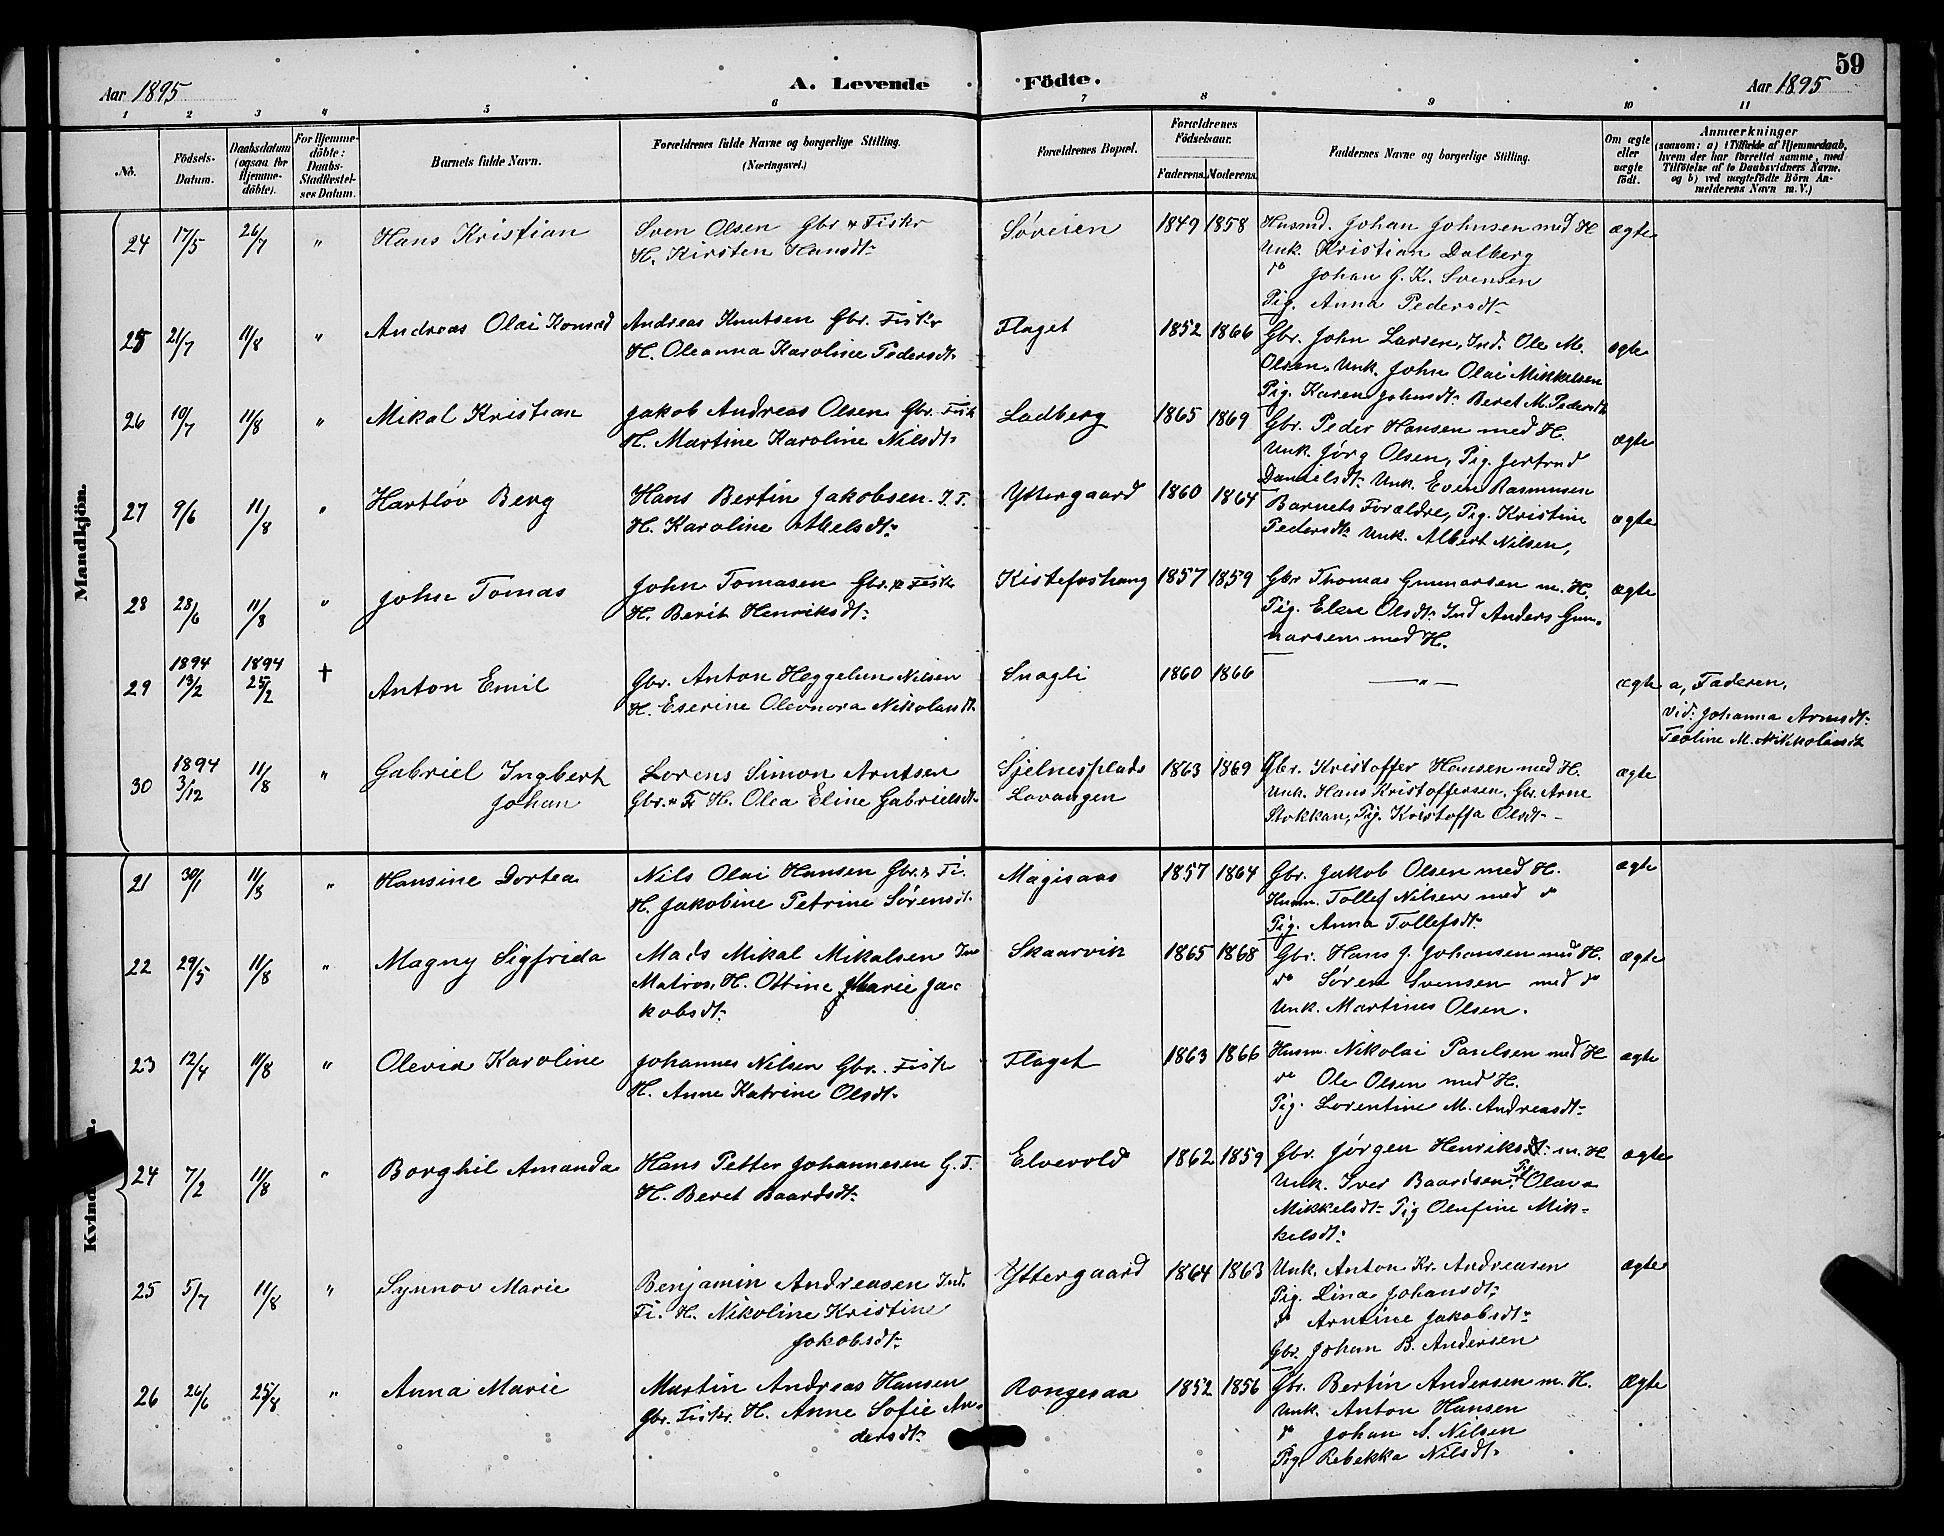 59
Aar 1895
A. Levende Födte.
Aar 1895
1 2 3 4 5 6 7 8 9 10 11
No.
Födsels-Datum.
Daabsdatum (ogsaa for Hjemmedöbte).
For Hjemmedöbte: Daabs-Stadfæstelses Datum.
Barnets fulde Navn.
Forældrenes fulde Navne og borgerlige Stilling. (Næringsvei.)
Forældrenes Bopæl.
Forældrenes Födselsaar.
Faderens. Moderens.
Faddernes Navne og borgerlige Stilling.
Om ægte eller uægte födt.
Anmærkninger
(saasom: a) i Tilfælde af Hjemmedaab, hvem der har forrettet samme, med Tilföielse af to Daabsvidners Navne, og b) ved uægtefödte Börn Anmelderens Navn m. V.)
Mandkjön.
24 17/5 26/7 " Hans Kristian
Sven Olsen Gbr & Fiskr
H. Kirsten Hansdt:
Søveien 1849 1858
Husmd. Johan Johnsen med H
Unk. Kristian Dalberg
do Johan G. K. Svensen
Pig. Anna Pedersdt:
ægte
25 21/7 11/8 " Andreas Olai Konrad
Andreas Knutsen Gbr. Fiskr
H. Oleanna Karoline Pedersdt:
Flaget 1852 1866
Gbr. John Larsen, Ind. Ole M.
Olsen, Unk. John Olai Mikkelsen
Pig. Karen Johnsdt: Beret M. Pedersdt
ægte
26 10/7 11/8 " Mikal Kristian
Jakob Andreas Olsen Gbr. Fisk
H. Martine Karoline Nilsdt:
Ladberg 1865 1869
Gbr. Peder Hansen med H.
Unk. Jørg Olsen, Pig. Jertrud
Danielsdt: Unk. Even Rasmusen
ægte
27 9/6 11/8 " Hartløv Berg
Hans Bertin Jakobsen. I. F.
H. Karoline Abelsdt:
Yttergaard 1860 1864
Barnets Forældre, Pig. Kristine
Pedersdt: Unk. Albert Nilsen,
ægte
28 28/6 11/8 " John Tomas
John Tomasen Gbr. & Fiskr
H. Berit Henriksdt:
Kistefoshaug 1857 1859
Gbr Thomas Gunnarsen m. H.
Pig. Elen Olsdt: Ind Anders Gun-
narsen med H.
ægte
29 1894 13/2 1894 25/2 † Anton Emil
Gbr. Anton Heggelun Nilsen
H. Eserine Oleonora Nikolaisdt:
Snogli 1860 1866
— " —
ægte
a, Faderen,
Vid: Johanna Arnsdt:
Teoline M. Nikolaisdt
30 1894 3/12 11/8 " Gabriel Ingbert
Johan
Lorens Simon Arntsen
Gbr. & Fi H. Olea Eline Gabrielsdt:
Sjelnesplads
Lavangen
1863 1869
Gbr. Kristoffer Hansen med H.
Unk. Hans Kristoffersen, Gbr. Arne
Stokkan, Pig. Kristoffa Olsdt:
ægte
Kvind
21 30/1 11/8 " Hansine Dortea
Nils Olai Hansen Gbr. & Fi.
H. Jakobine Petrine Sørensdt.
Magisaas 1857 1864
Gbr. Jakob Olsen med H.
Husm. Tollef Nilsen med do
Pig. Anna Tollefsdt:
ægte
22 29/5 11/8 " Magny Sigfrida
Mads Mikal Mikalsen Ind
Matros, H. Ottine Marie Ja-
kobsdt:
Skaarvik 1865 1868
Gbr. Hans J. Johansen med H.
do Søren Svensen med do
Unk. Martines Olsen.
ægte
23 12/4 11/8 " Olevia Karoline
Johannes Nilsen Gbr. Fisk
H. Anne Katrine Olsdt:
Flaget 1863 1866
Husm. Nikolai Paulsen med H
do Ole Olsen med H.
Pig. Lorentine M. Andreasdt:
ægte
24 7/2 11/8 " Borghil Amanda
Hans Petter Johannesen G. F.
H. Beret Baardsdt:
Elvevold 1862 1859
Gbr. Jørgen Henriksdt: m. H
Unk. Iver Baardsen, Pig Olava
Mikkelsdt: Pig Olufine Mik-
kelsdt:
ægte
25 5/7 11/8 " Synnov Marie
Benjamin Andreasen Ind.
Fi. H. Nikoline Kristine
Jakobsdt:
Yttergaard 1864 1863
Unk. Anton Kr. Andreasen
Pig. Lina Johansdt:
do Arntine Jakobsdt:
Gbr. Johan B. Andersen
ægte
26 26/6 25/8 " Anna Marie
Martin Andreas Hansen
Gbr. Fiskr. H. Anne Sofie An-
dersdt:
Rongesaa 1852 1856
Gbr. Bertin Andersen m. H.
Unk. Anton Hansen
do Johan A. Nilsen
Pig. Rebekka Nilsdt:
Ægte